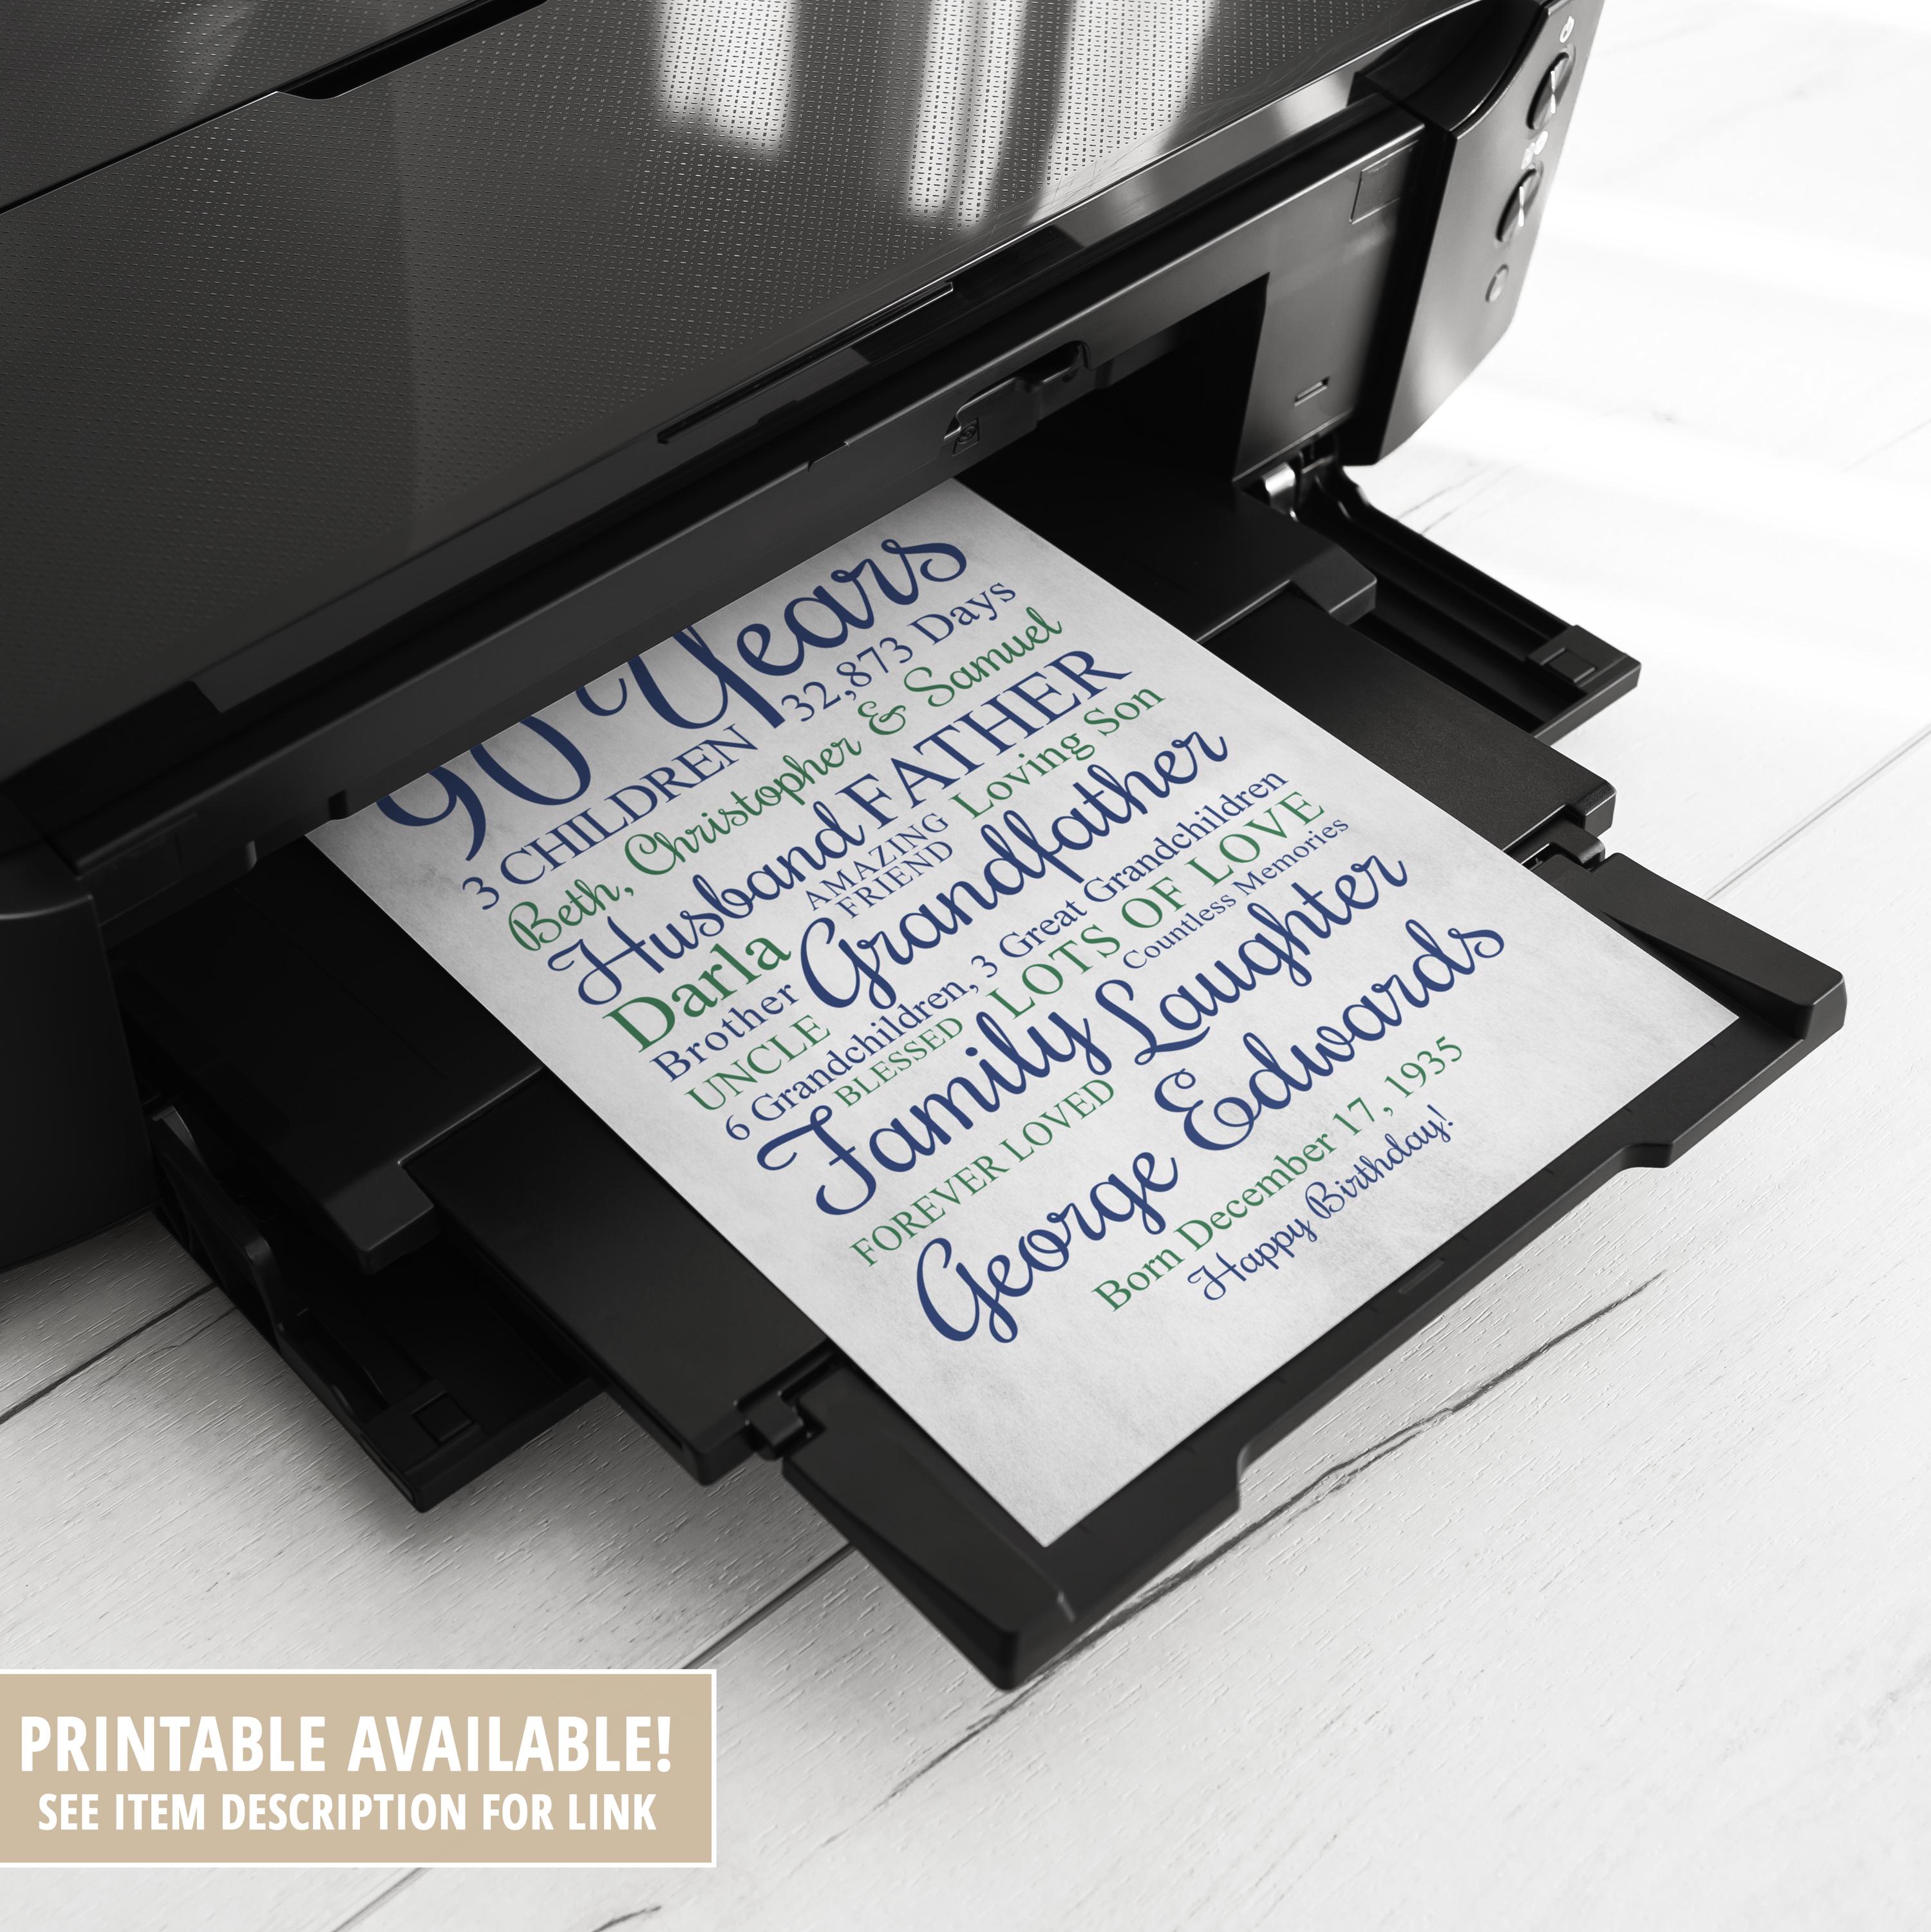 90 Years
3 CHILDREN 32,873 Days
Beth, Christopher & Samuel
Husband FATHER
Darla AMAZING FRIEND Loving Son
Brother Grandfather
UNCLE
6 Grandchildren, 3 Great Grandchildren
BLESSED LOTS OF LOVE
Countless Memories
Family Laughter
FOREVER LOVED
George Edwards
Born December 17, 1935
Happy Birthday!
PRINTABLE AVAILABLE!
SEE ITEM DESCRIPTION FOR LINK